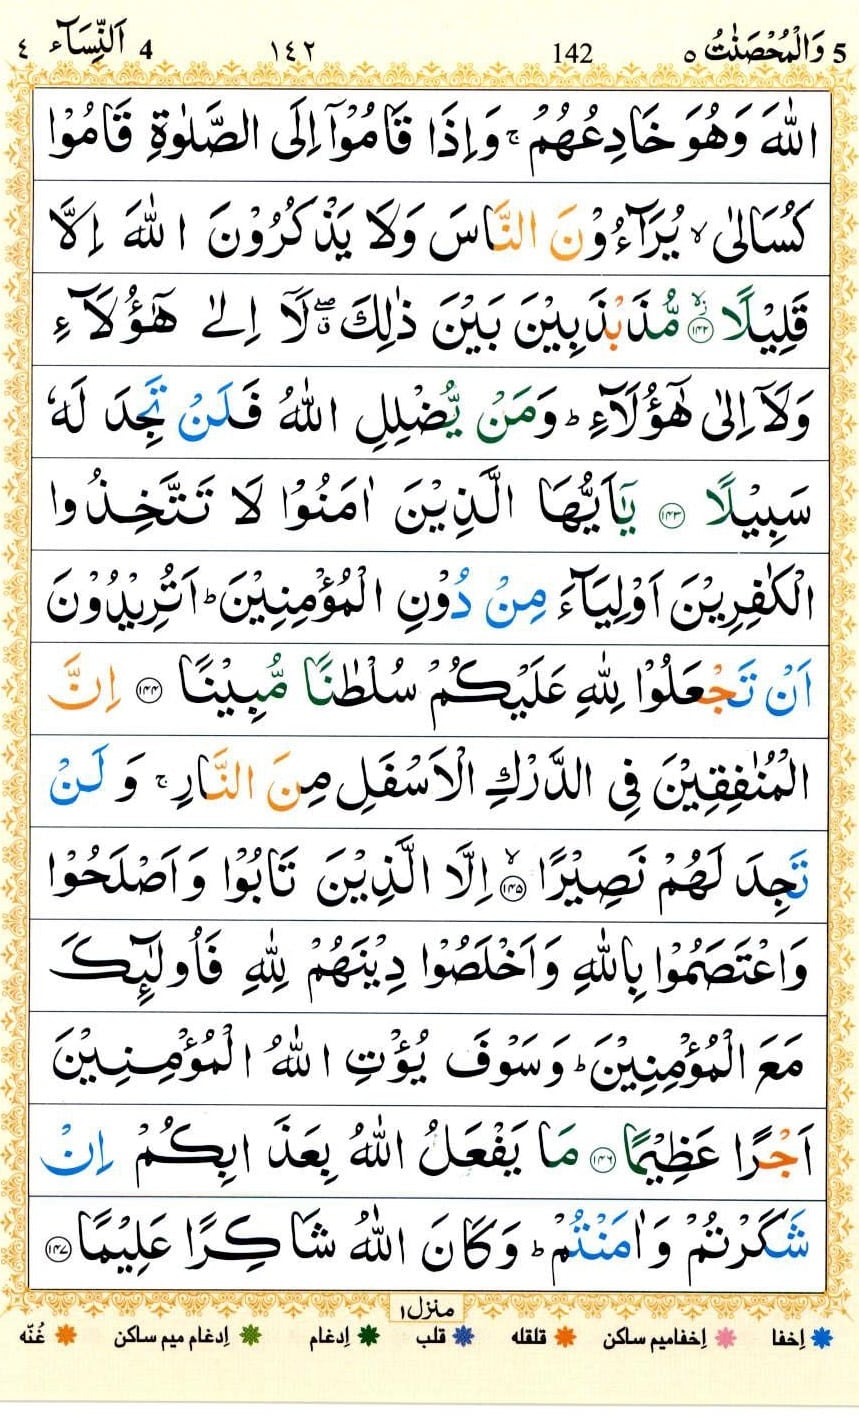 5 وَالْمُحْصَنٰتُ ٥ 142 ١٤٢ 4 اَلنِّسَآء ٤
اللّٰهَ وَهُوَ خَادِعُهُمْ ۚ وَاِذَا قَامُوْۤا اِلَى الصَّلٰوةِ قَامُوْا
كُسَالٰى ۙ يُرَآءُوْنَ النَّاسَ وَلَا يَذْكُرُوْنَ اللّٰهَ اِلَّا
قَلِيْلًا ۙ۝۱۴۲ مُّذَبْذَبِيْنَ بَيْنَ ذٰلِكَ ۖ ق لَاۤ اِلٰى هٰٓؤُلَآءِ
وَلَاۤ اِلٰى هٰٓؤُلَآءِ ؕ وَمَنْ يُّضْلِلِ اللّٰهُ فَلَنْ تَجِدَ لَهٗ
سَبِيْلًا ۝۱۴۳ يٰۤاَيُّهَا الَّذِيْنَ اٰمَنُوْا لَا تَتَّخِذُوا
الْكٰفِرِيْنَ اَوْلِيَآءَ مِنْ دُوْنِ الْمُؤْمِنِيْنَ ؕ اَتُرِيْدُوْنَ
اَنْ تَجْعَلُوْا لِلّٰهِ عَلَيْكُمْ سُلْطٰنًا مُّبِيْنًا ۝۱۴۴ اِنَّ
الْمُنٰفِقِيْنَ فِى الدَّرْكِ الْاَسْفَلِ مِنَ النَّارِ ۚ وَلَنْ
تَجِدَ لَهُمْ نَصِيْرًا ۙ۝۱۴۵ اِلَّا الَّذِيْنَ تَابُوْا وَاَصْلَحُوْا
وَاعْتَصَمُوْا بِاللّٰهِ وَاَخْلَصُوْا دِيْنَهُمْ لِلّٰهِ فَاُولٰٓئِكَ
مَعَ الْمُؤْمِنِيْنَ ؕ وَسَوْفَ يُؤْتِ اللّٰهُ الْمُؤْمِنِيْنَ
اَجْرًا عَظِيْمًا ۝۱۴۶ مَا يَفْعَلُ اللّٰهُ بِعَذَابِكُمْ اِنْ
شَكَرْتُمْ وَاٰمَنْتُمْ ؕ وَكَانَ اللّٰهُ شَاكِرًا عَلِيْمًا ۝۱۴۷
منزل ۱
اِخفا اِخفامیم ساکن قلقله قلب اِدغام اِدغام میم ساکن غُنّه